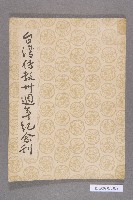 台灣傳教卅週年紀念刊